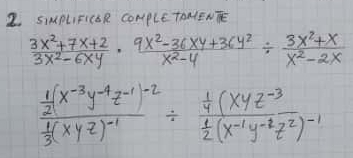 2. SIMPLIFICAR COMPLETAMENTE
(3x²+7x+2)/(3x²-6xy) · (9x²-36xy+36y²)/(x²-4) ÷ (3x²+x)/(x²-2x)
(1/2(x⁻³y⁻⁴z⁻¹)⁻²)/(1/3(xyz)⁻¹) ÷ (1/4(xyz⁻³)/(1/2(x⁻¹y⁻²z²)⁻¹)